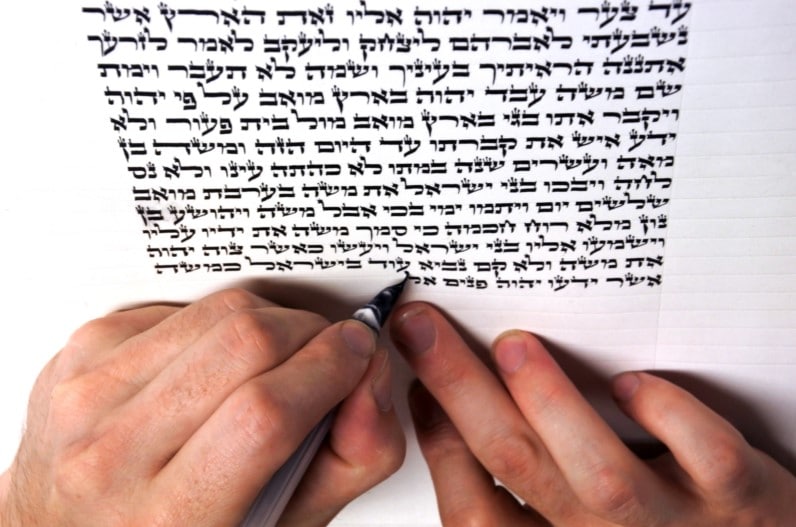 עד צער ויאמר יהוה אליו זאת הארץ אשר
נשבעתי לאברהם ליצחק וליעקב לאמר לזרעך
אתננה הראיתיך בעיניך ושמה לא תעבר וימת
שם משה עבד יהוה בארץ מואב על פי יהוה
ויקבר אתו בגי בארץ מואב מול בית פעור ולא
ידע איש את קברתו עד היום הזה ומשה בן
מאה ועשרים שנה במתו לא כהתה עינו ולא נס
לחה ויבכו בני ישראל את משה בערבת מואב
שלשים יום ויתמו ימי בכי אבל משה ויהושע בן
נון מלא רוח חכמה כי סמך משה את ידיו עליו
וישמעו אליו בני ישראל ויעשו כאשר צוה יהוה
את משה ולא קם נביא עוד בישראל כמשה
אשר ידעו יהוה פנים אל